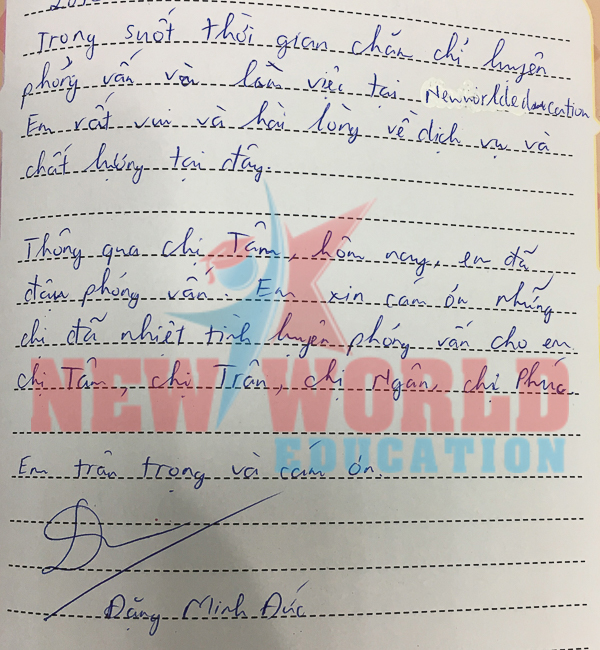 Trong suốt thời gian chăm chỉ luyện
phỏng vấn và làm việc tại Newworldeducation
Em rất vui và hài lòng về dịch vụ và
chất lượng tại đây.
Thông qua chị Tâm, hôm nay, em đã
đậu phỏng vấn. Em xin cám ơn những
chị đã nhiệt tình luyện phỏng vấn cho em
chị Tâm, chị Trân, chị Ngân, chị Phúc
NEW WORLD
EDUCATION
Em trân trọng và cám ơn.
Đặng Minh Đức